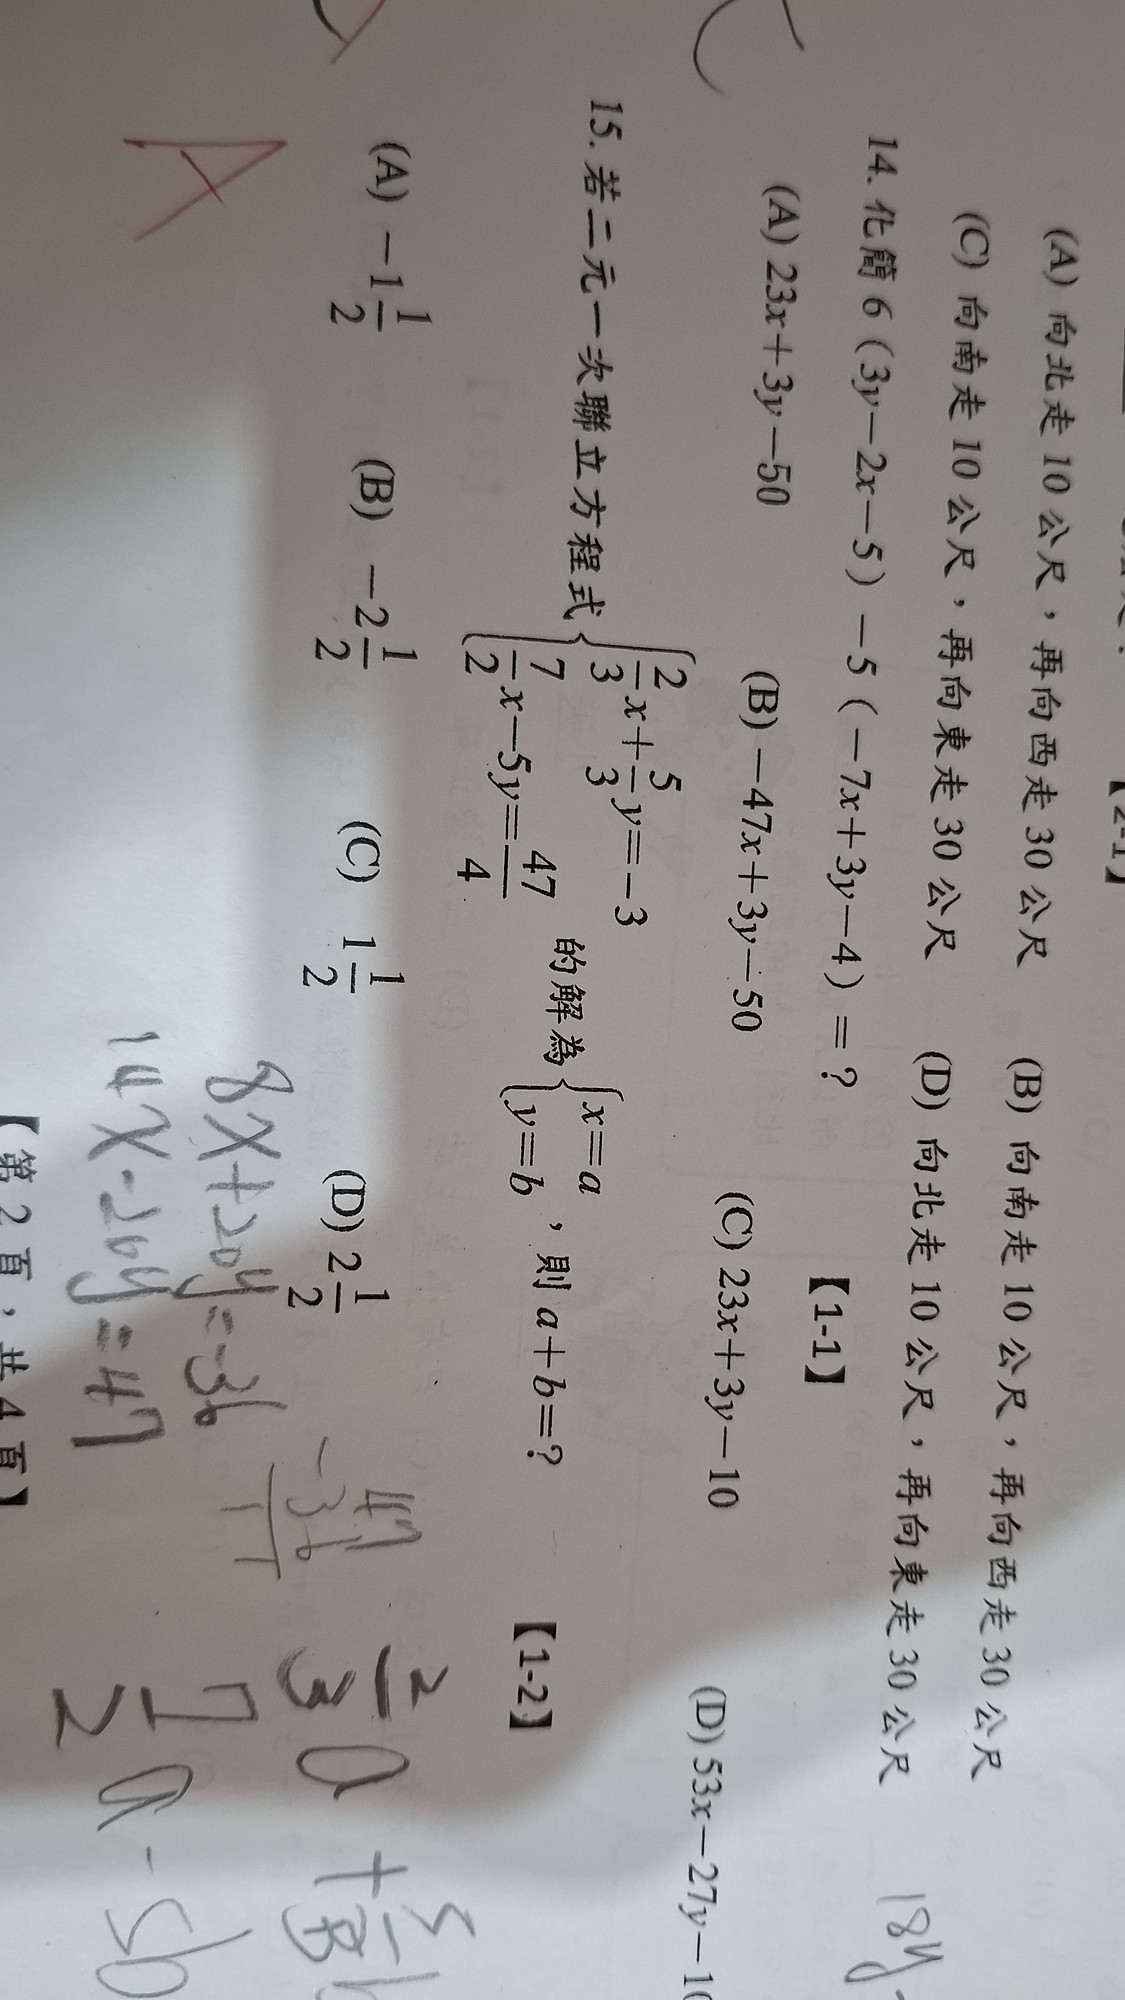 【2-1】
(A) 向北走 10 公尺，再向西走 30 公尺 (B) 向南走 10 公尺，再向西走 30 公尺
(C) 向南走 10 公尺，再向東走 30 公尺 (D) 向北走 10 公尺，再向東走 30 公尺
14. 化簡 6（3y－2x－5）－5（－7x＋3y－4）＝？ 【1-1】
18y
(A) 23x＋3y－50 (B) －47x＋3y－50 (C) 23x＋3y－10 (D) 53x－27y－10
15. 若二元一次聯立方程式 { 2/3 x＋5/3 y＝－3
7/2 x－5y＝47/4 的解為 { x＝a
y＝b ，則 a＋b＝？ 【1-2】
(A) －1 1/2 (B) －2 1/2 (C) 1 1/2 (D) 2 1/2
A
8x+20y=-36
14x-20y=47
47
-36
11
2/3 a + 5/3 b
7/2 a - 5b
【第 2 頁，共 4 頁】